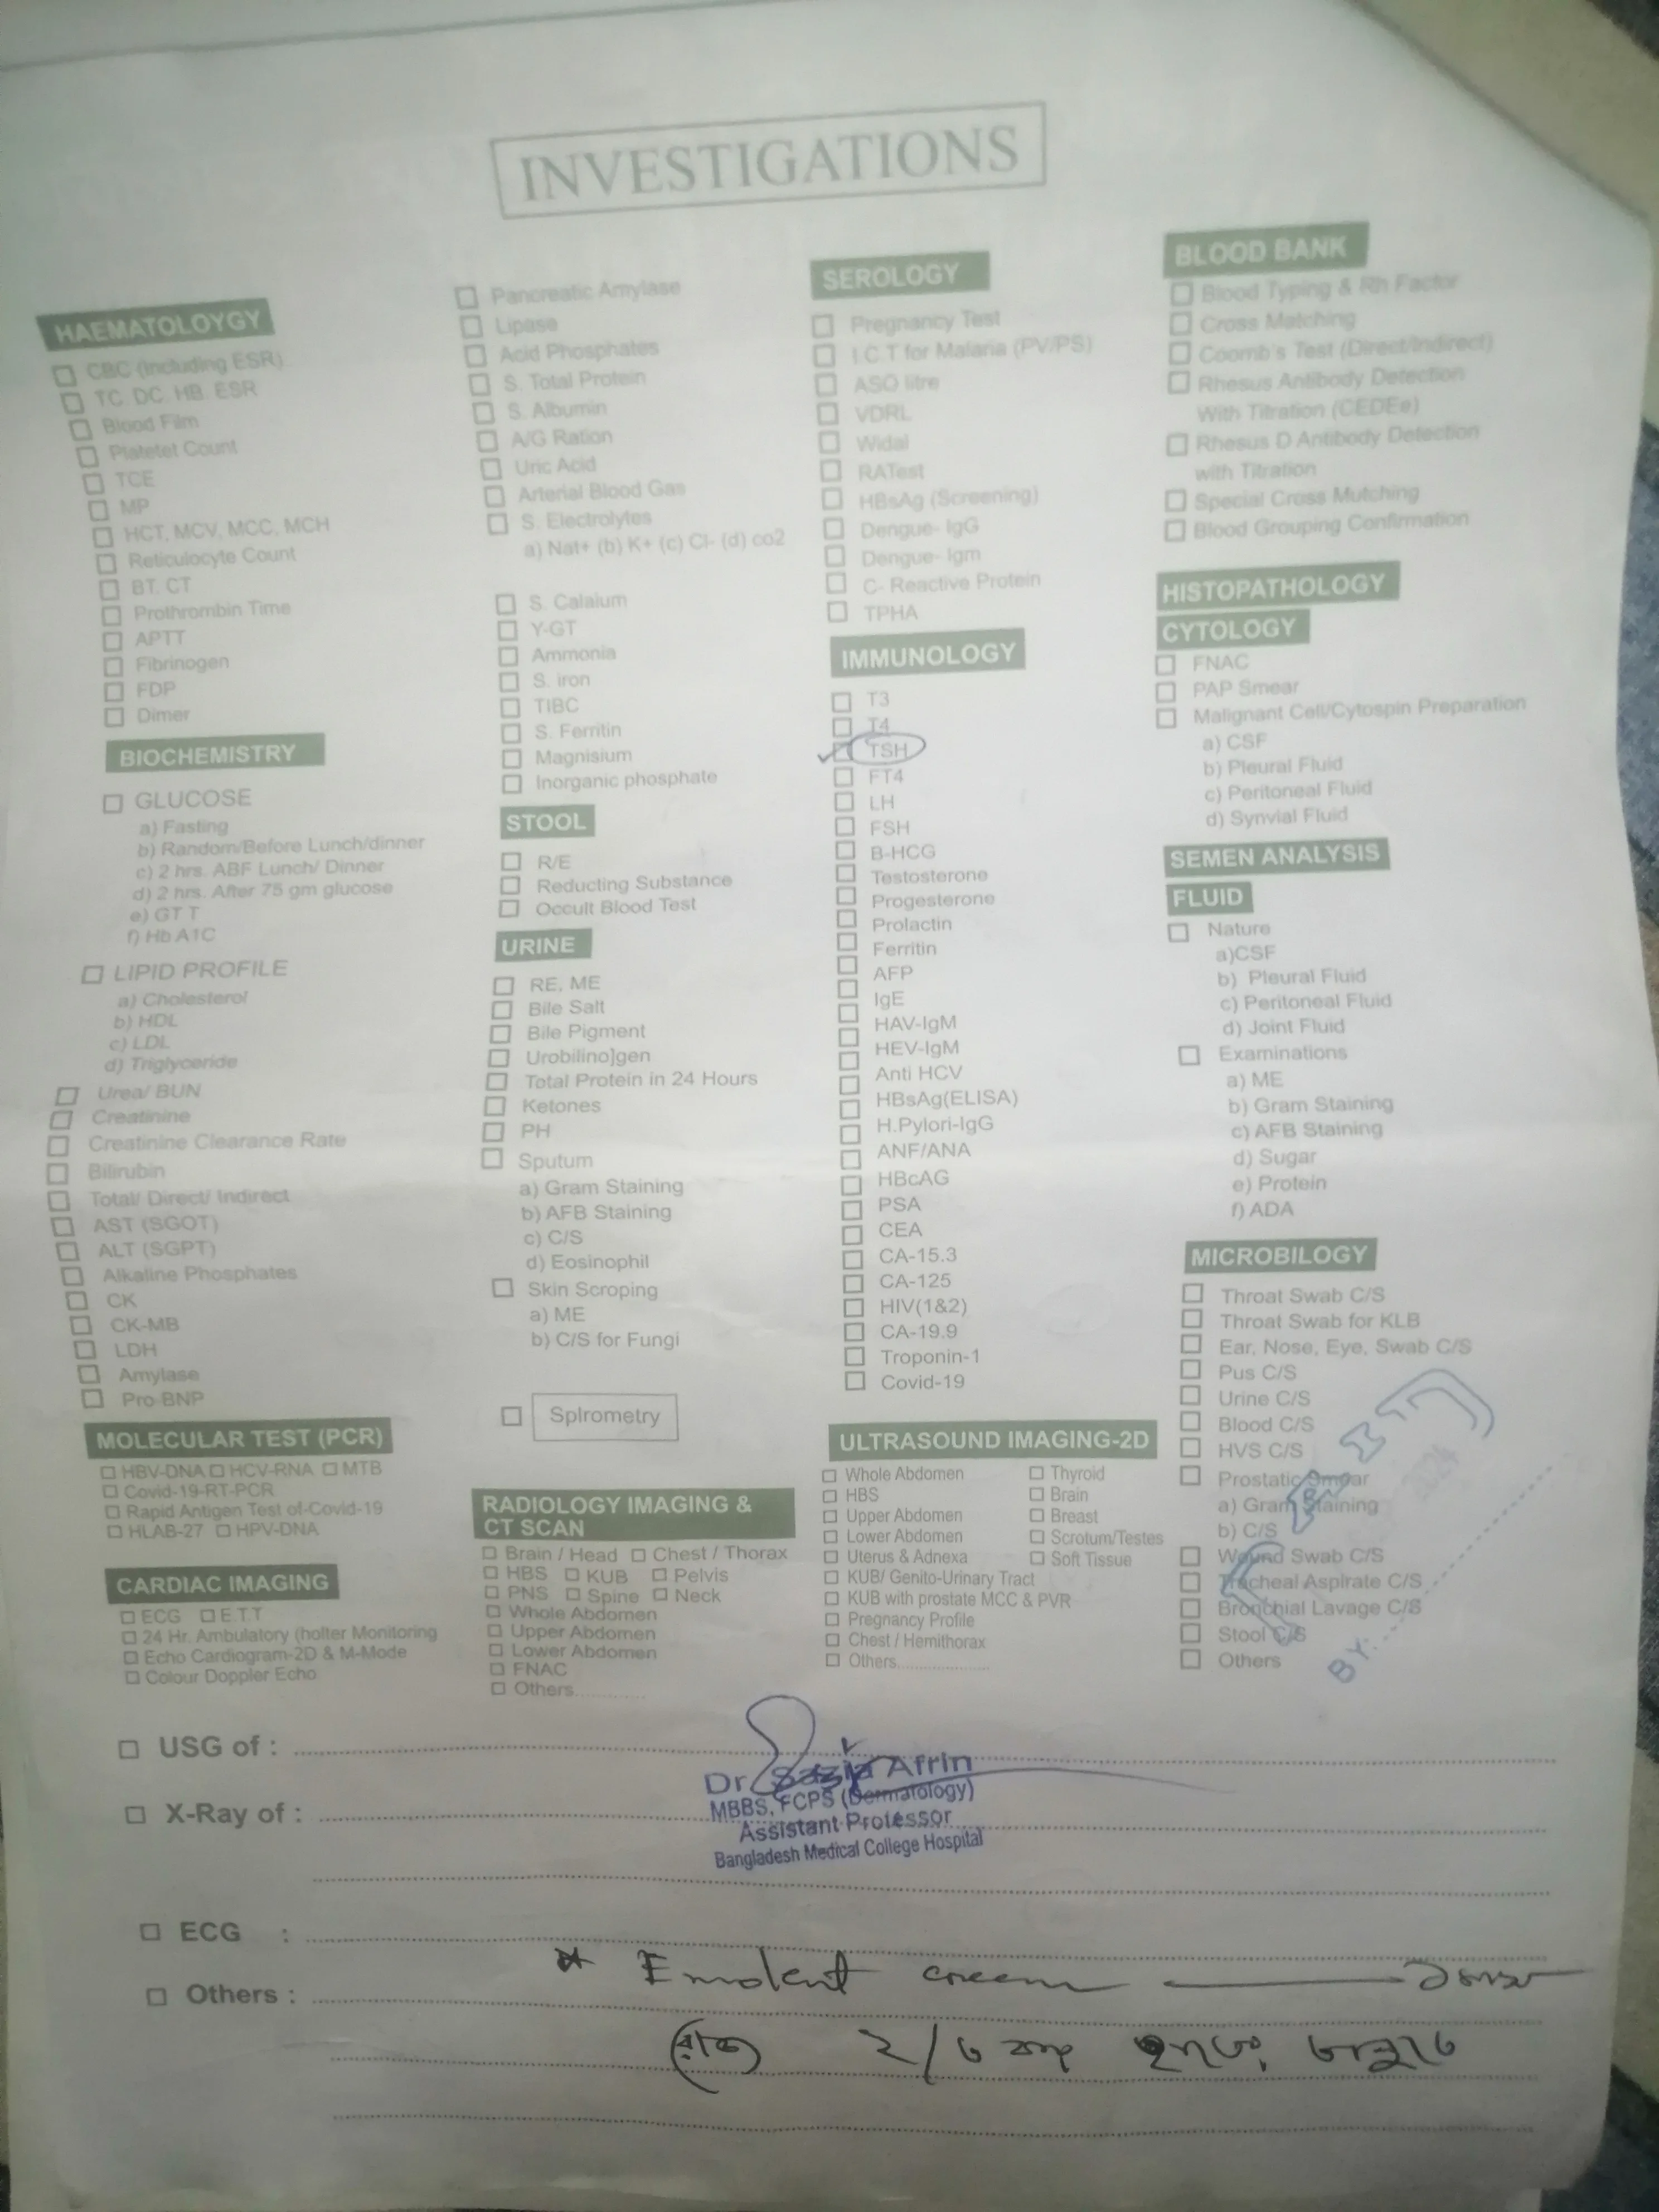 INVESTIGATIONS
HAEMATOLOYGY
CBC (Including ESR)
TC. DC. HB. ESR
Blood Film
Platetet Count
TCE
MP
HCT, MCV, MCC, MCH
Reticulocyte Count
BT. CT
Prothrombin Time
APTT
Fibrinogen
FDP
Dimer
BIOCHEMISTRY
GLUCOSE
a) Fasting
b) Random/Before Lunch/dinner
c) 2 hrs. ABF Lunch/ Dinner
d) 2 hrs. After 75 gm glucose
e) GT T
f) Hb A1C
LIPID PROFILE
a) Cholesterol
b) HDL
c) LDL
d) Triglyceride
Urea/ BUN
Creatinine
Creatinine Clearance Rate
Bilirubin
Total/ Direct/ Indirect
AST (SGOT)
ALT (SGPT)
Alkaline Phosphates
CK
CK-MB
LDH
Amylase
Pro BNP
MOLECULAR TEST (PCR)
HBV-DNA HCV-RNA MTB
Covid-19-RT-PCR
Rapid Antigen Test of-Covid-19
HLAB-27 HPV-DNA
CARDIAC IMAGING
ECG E.T.T
24 Hr. Ambulatory (holter Monitoring
Echo Cardiogram-2D & M-Mode
Colour Doppler Echo
Pancreatic Amylase
Lipase
Acid Phosphates
S. Total Protein
S. Albumin
A/G Ration
Uric Acid
Arterial Blood Gas
S. Electrolytes
a) Nat+ (b) K+ (c) Cl- (d) co2
S. Calaium
Y-GT
Ammonia
S. iron
TIBC
S. Ferritin
Magnisium
Inorganic phosphate
STOOL
R/E
Reducting Substance
Occult Blood Test
URINE
RE, ME
Bile Salt
Bile Pigment
Urobilino]gen
Total Protein in 24 Hours
Ketones
PH
Sputum
a) Gram Staining
b) AFB Staining
c) C/S
d) Eosinophil
Skin Scroping
a) ME
b) C/S for Fungi
Spirometry
RADIOLOGY IMAGING &
CT SCAN
Brain / Head Chest / Thorax
HBS KUB Pelvis
PNS Spine Neck
Whole Abdomen
Upper Abdomen
Lower Abdomen
FNAC
Others..............
SEROLOGY
Pregnancy Test
I.C.T for Malaria (PV/PS)
ASO litre
VDRL
Widal
RATest
HBsAg (Screening)
Dengue- IgG
Dengue- Igm
C- Reactive Protein
TPHA
IMMUNOLOGY
T3
T4
TSH
FT4
LH
FSH
B-HCG
Testosterone
Progesterone
Prolactin
Ferritin
AFP
IgE
HAV-IgM
HEV-IgM
Anti HCV
HBsAg(ELISA)
H.Pylori-IgG
ANF/ANA
HBcAG
PSA
CEA
CA-15.3
CA-125
HIV(1&2)
CA-19.9
Troponin-1
Covid-19
ULTRASOUND IMAGING-2D
Whole Abdomen Thyroid
HBS Brain
Upper Abdomen Breast
Lower Abdomen Scrotum/Testes
Uterus & Adnexa Soft Tissue
KUB/ Genito-Urinary Tract
KUB with prostate MCC & PVR
Pregnancy Profile
Chest / Hemithorax
Others....................
BLOOD BANK
Blood Typing & Rh Factor
Cross Matching
Coomb's Test (Direct/Indirect)
Rhesus Antibody Detection
With Titration (CEDEe)
Rhesus D Antibody Detection
with Titration
Special Cross Mutching
Blood Grouping Confirmation
HISTOPATHOLOGY
CYTOLOGY
FNAC
PAP Smear
Malignant Cell/Cytospin Preparation
a) CSF
b) Pleural Fluid
c) Peritoneal Fluid
d) Synvial Fluid
SEMEN ANALYSIS
FLUID
Nature
a)CSF
b) Pleural Fluid
c) Peritoneal Fluid
d) Joint Fluid
Examinations
a) ME
b) Gram Staining
c) AFB Staining
d) Sugar
e) Protein
f) ADA
MICROBILOGY
Throat Swab C/S
Throat Swab for KLB
Ear, Nose, Eye, Swab C/S
Pus C/S
Urine C/S
Blood C/S
HVS C/S
Prostatic Smear
a) Gram Staining
b) C/S
Wound Swab C/S
Tracheal Aspirate C/S
Bronchial Lavage C/S
Stool C/S
Others
2024
BY:
USG of :
X-Ray of :
Dr. Sazia Afrin
MBBS, FCPS (Dermatology)
Assistant Professor
Bangladesh Medical College Hospital
ECG :
Others :
* Emolent cream
২/৩